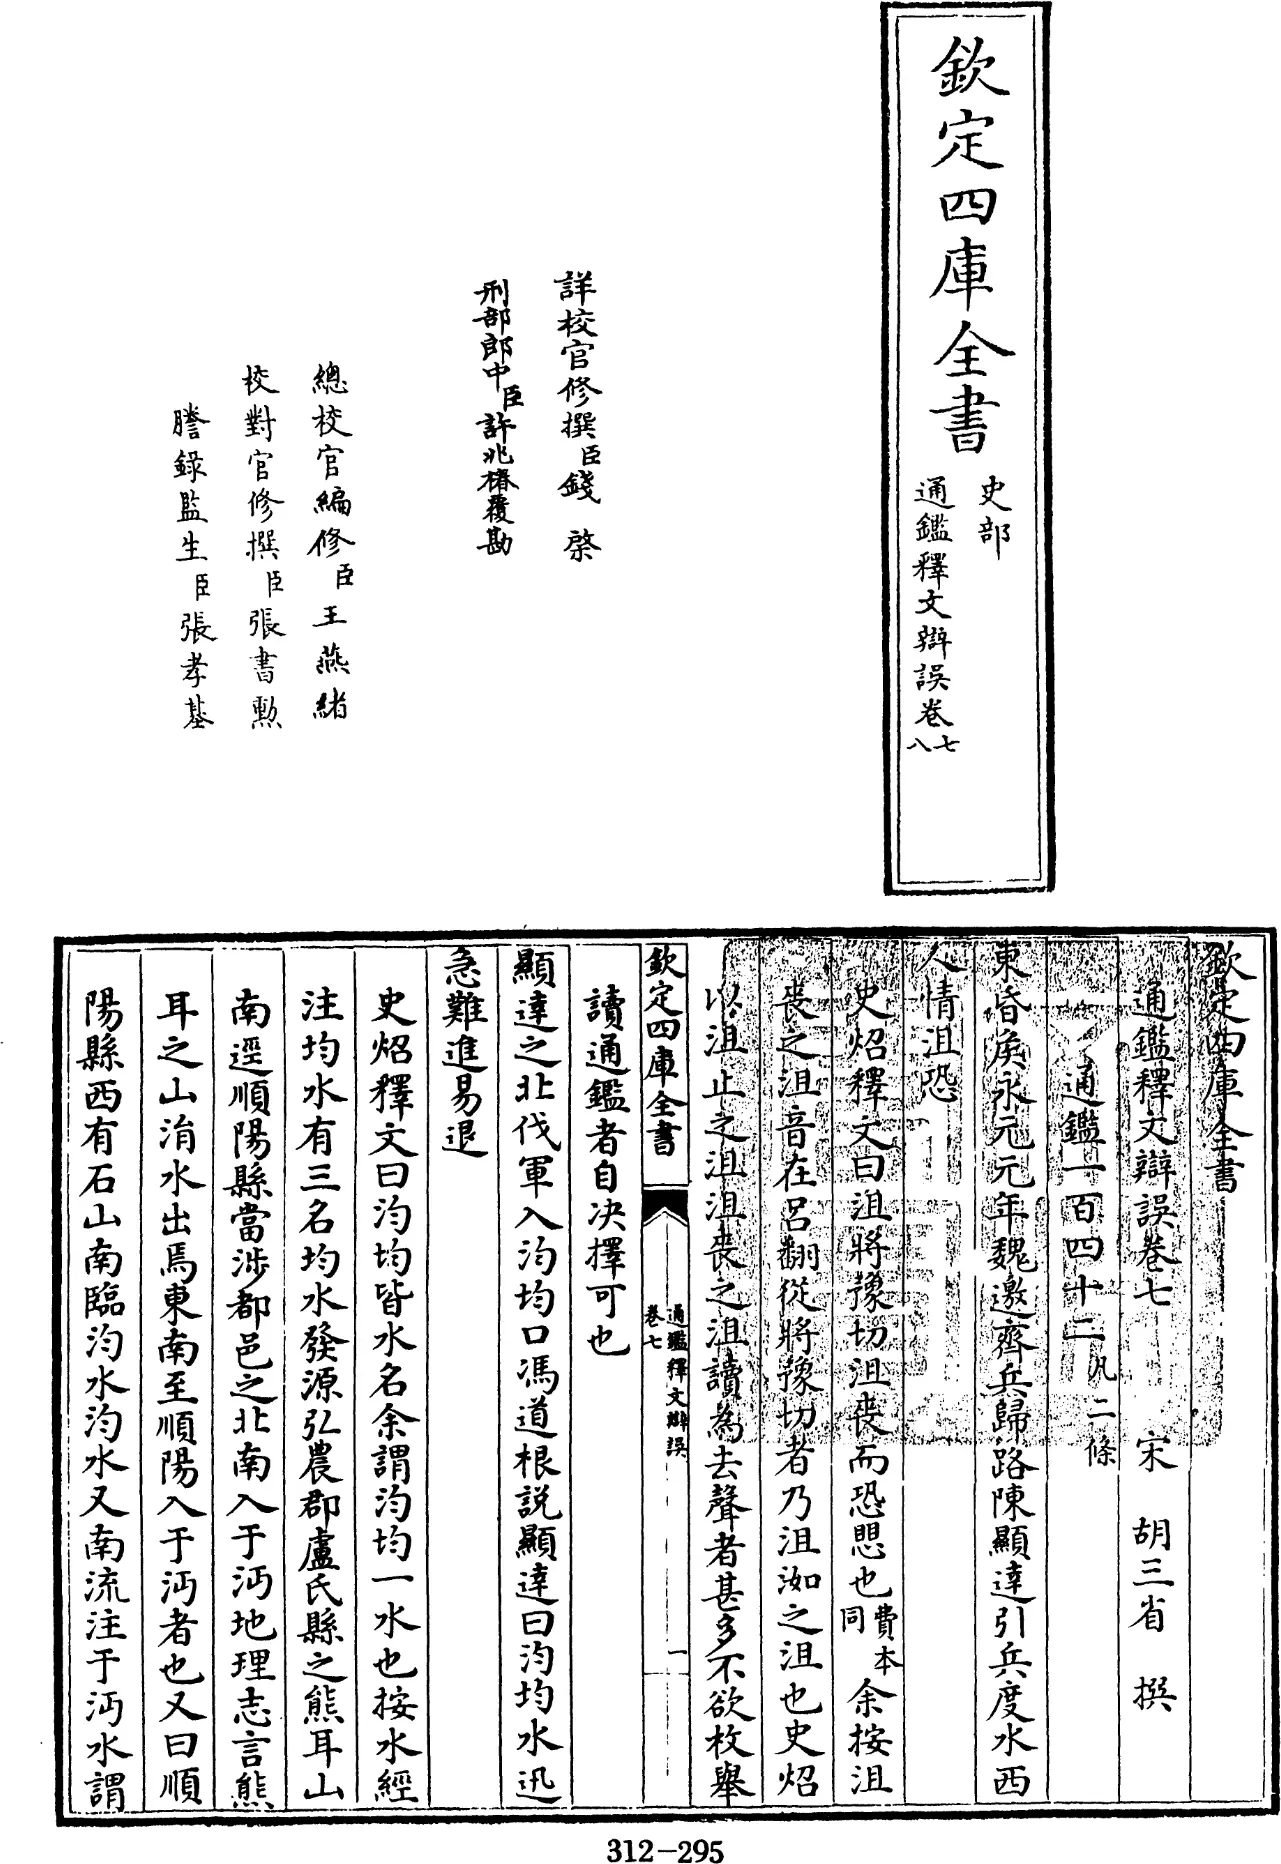 欽定四庫全書
史部
通鑑釋文辯誤卷七
八
詳校官修撰臣錢棨
刑部郎中臣許兆椿覆勘
總校官編修臣王燕緒
校對官修撰臣張書勲
謄錄監生臣張孝基
欽定四庫全書
通鑑釋文辯誤卷七 宋 胡三省 撰
通鑑一百四十二凡二條
東昏侯永元元年魏邀齊兵歸路陳顯達引兵度水西
人情沮恐
史炤釋文曰沮將豫切沮喪而恐愳也費本同余按沮
喪之沮音在呂翻從將豫切者乃沮洳之沮也史炤
以沮止之沮沮喪之沮讀為去聲者甚多不欲枚舉
欽定四庫全書
通鑑釋文辯誤
卷七
一
讀通鑑者自決擇可也
顯達之北伐軍入汮均口馮道根説顯達曰汮均水迅
急難進易退
史炤釋文曰汮均皆水名余謂汮均一水也按水經
注均水有三名均水發源弘農郡盧氏縣之熊耳山
南逕順陽縣當涉都邑之北南入于沔地理志言熊
耳之山淯水出焉東南至順陽入于沔者也又曰順
陽縣西有石山南臨汮水汮水又南流注于沔水謂
312-295